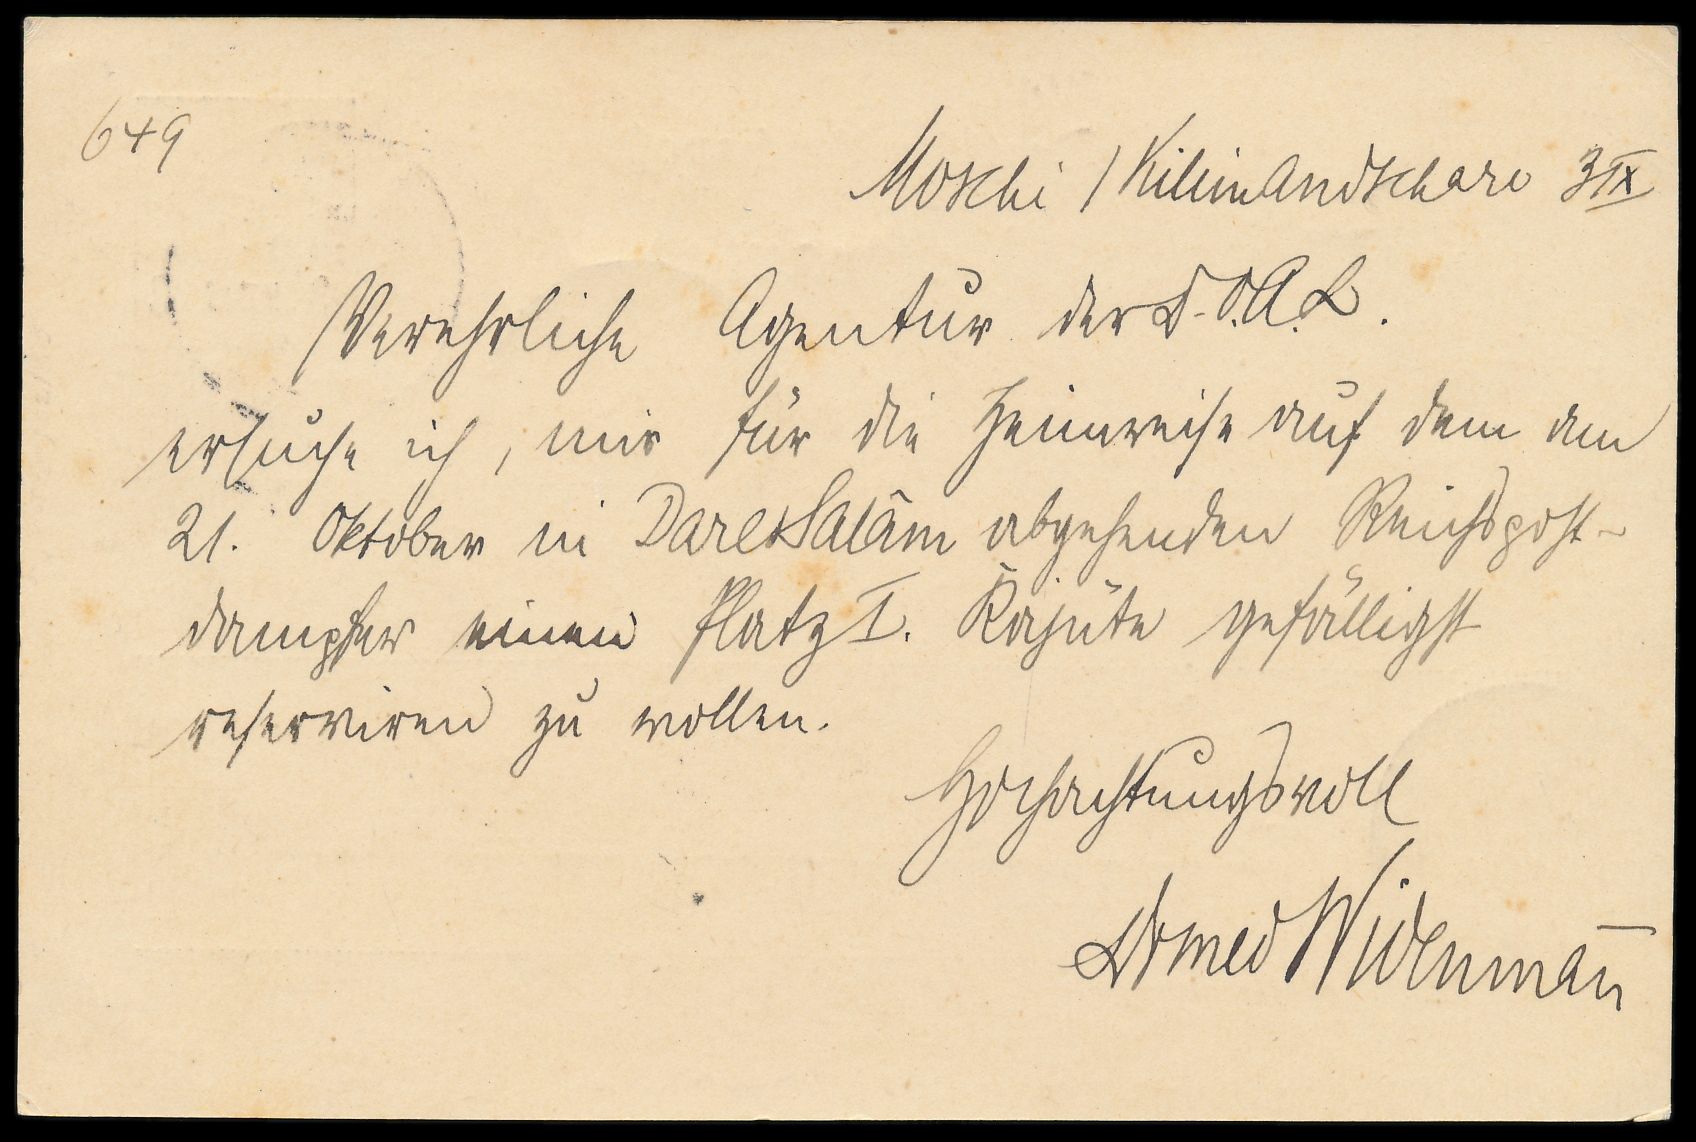 649
Moschi / Kilimandscharo 3/IX
Verehrliche Agentur der D.O.A.L.
ersuche ich, mir für die Heimreise auf dem am
21. Oktober in Daressalâm abgehenden Reichspost-
dampfer einen Platz I. Kajüte gefälligst
reserviren zu wollen.
Hochachtungsvoll
Dr med Widenmann